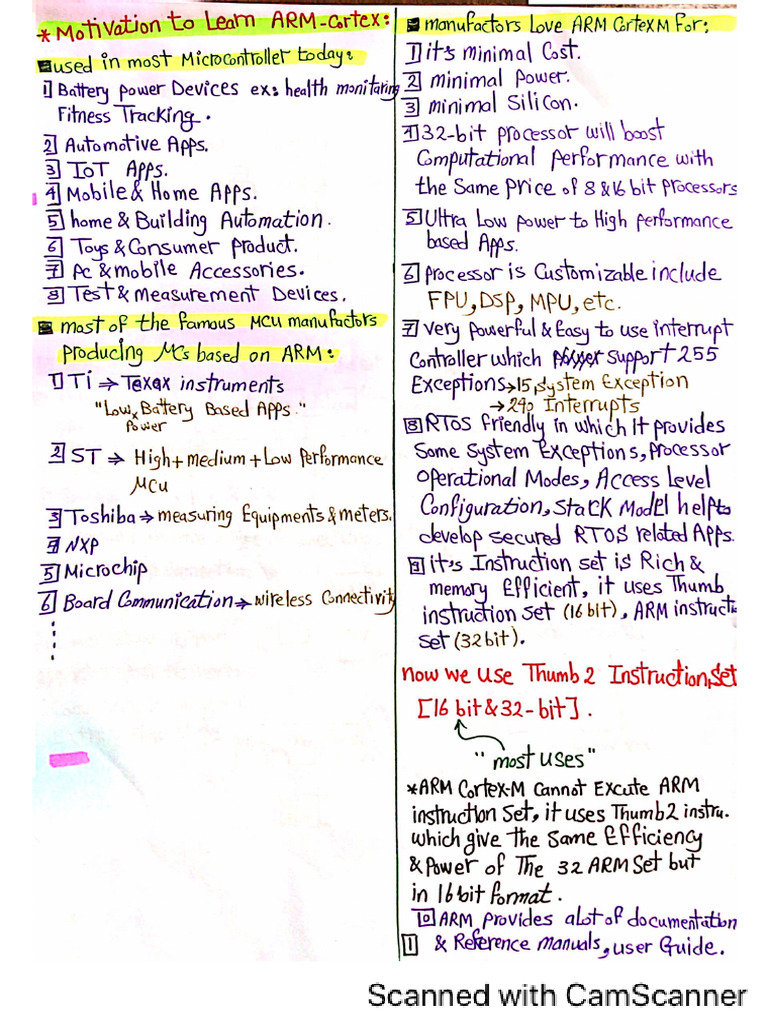 * Motivation to Learn ARM-Cortex:
used in most Microcontroller today:
1 Battery power Devices ex: health monitaring
Fitness Tracking.
2 Automotive Apps.
3 IoT Apps.
4 Mobile & Home Apps.
5 home & Building Automation.
6 Toys & Consumer product.
7 Pc & mobile Accessories.
8 Test & Measurement Devices.
most of the famous MCU manufactors
producing MCs based on ARM:
1 Ti ⇒ Texax instruments
"Low Battery Based Apps."
Power
2 ST ⇒ High + medium + Low Performance
MCU
3 Toshiba → measuring Equipments & meters.
4 NXP
5 Microchip
6 Board Communication → wireless Connectivity
manufactors Love ARM CortexM For:
1 it's minimal Cost.
2 minimal Power.
3 minimal Silicon.
4 32-bit processor will boost
Computational performance with
the Same Price of 8 & 16 bit processors
5 Ultra Low power to High performance
based Apps.
6 processor is Customizable include
FPU, DSP, MPU, etc.
7 very powerful & Easy to use interrupt
Controller which support 255
Exceptions → 15, system Exception
→ 240 Interrupts
8 RTOS friendly in which it provides
Some System Exceptions, processor
operational Modes, Access Level
Configuration, Stack Model help to
develop secured RTOS related Apps.
9 it's Instruction set is Rich &
memory Efficient, it uses Thumb
instruction set (16 bit), ARM instructi
set (32 bit).
Now we use Thumb 2 Instruction Set
[16 bit & 32-bit].
"most uses"
* ARM Cortex-M Cannot Excute ARM
instruction Set, it uses Thumb2 instru.
which give the Same Efficiency
& Power of The 32 ARM Set but
in 16 bit format.
10 ARM provides alot of documentation
1 & Reference manuals, user Guide.
Scanned with CamScanner